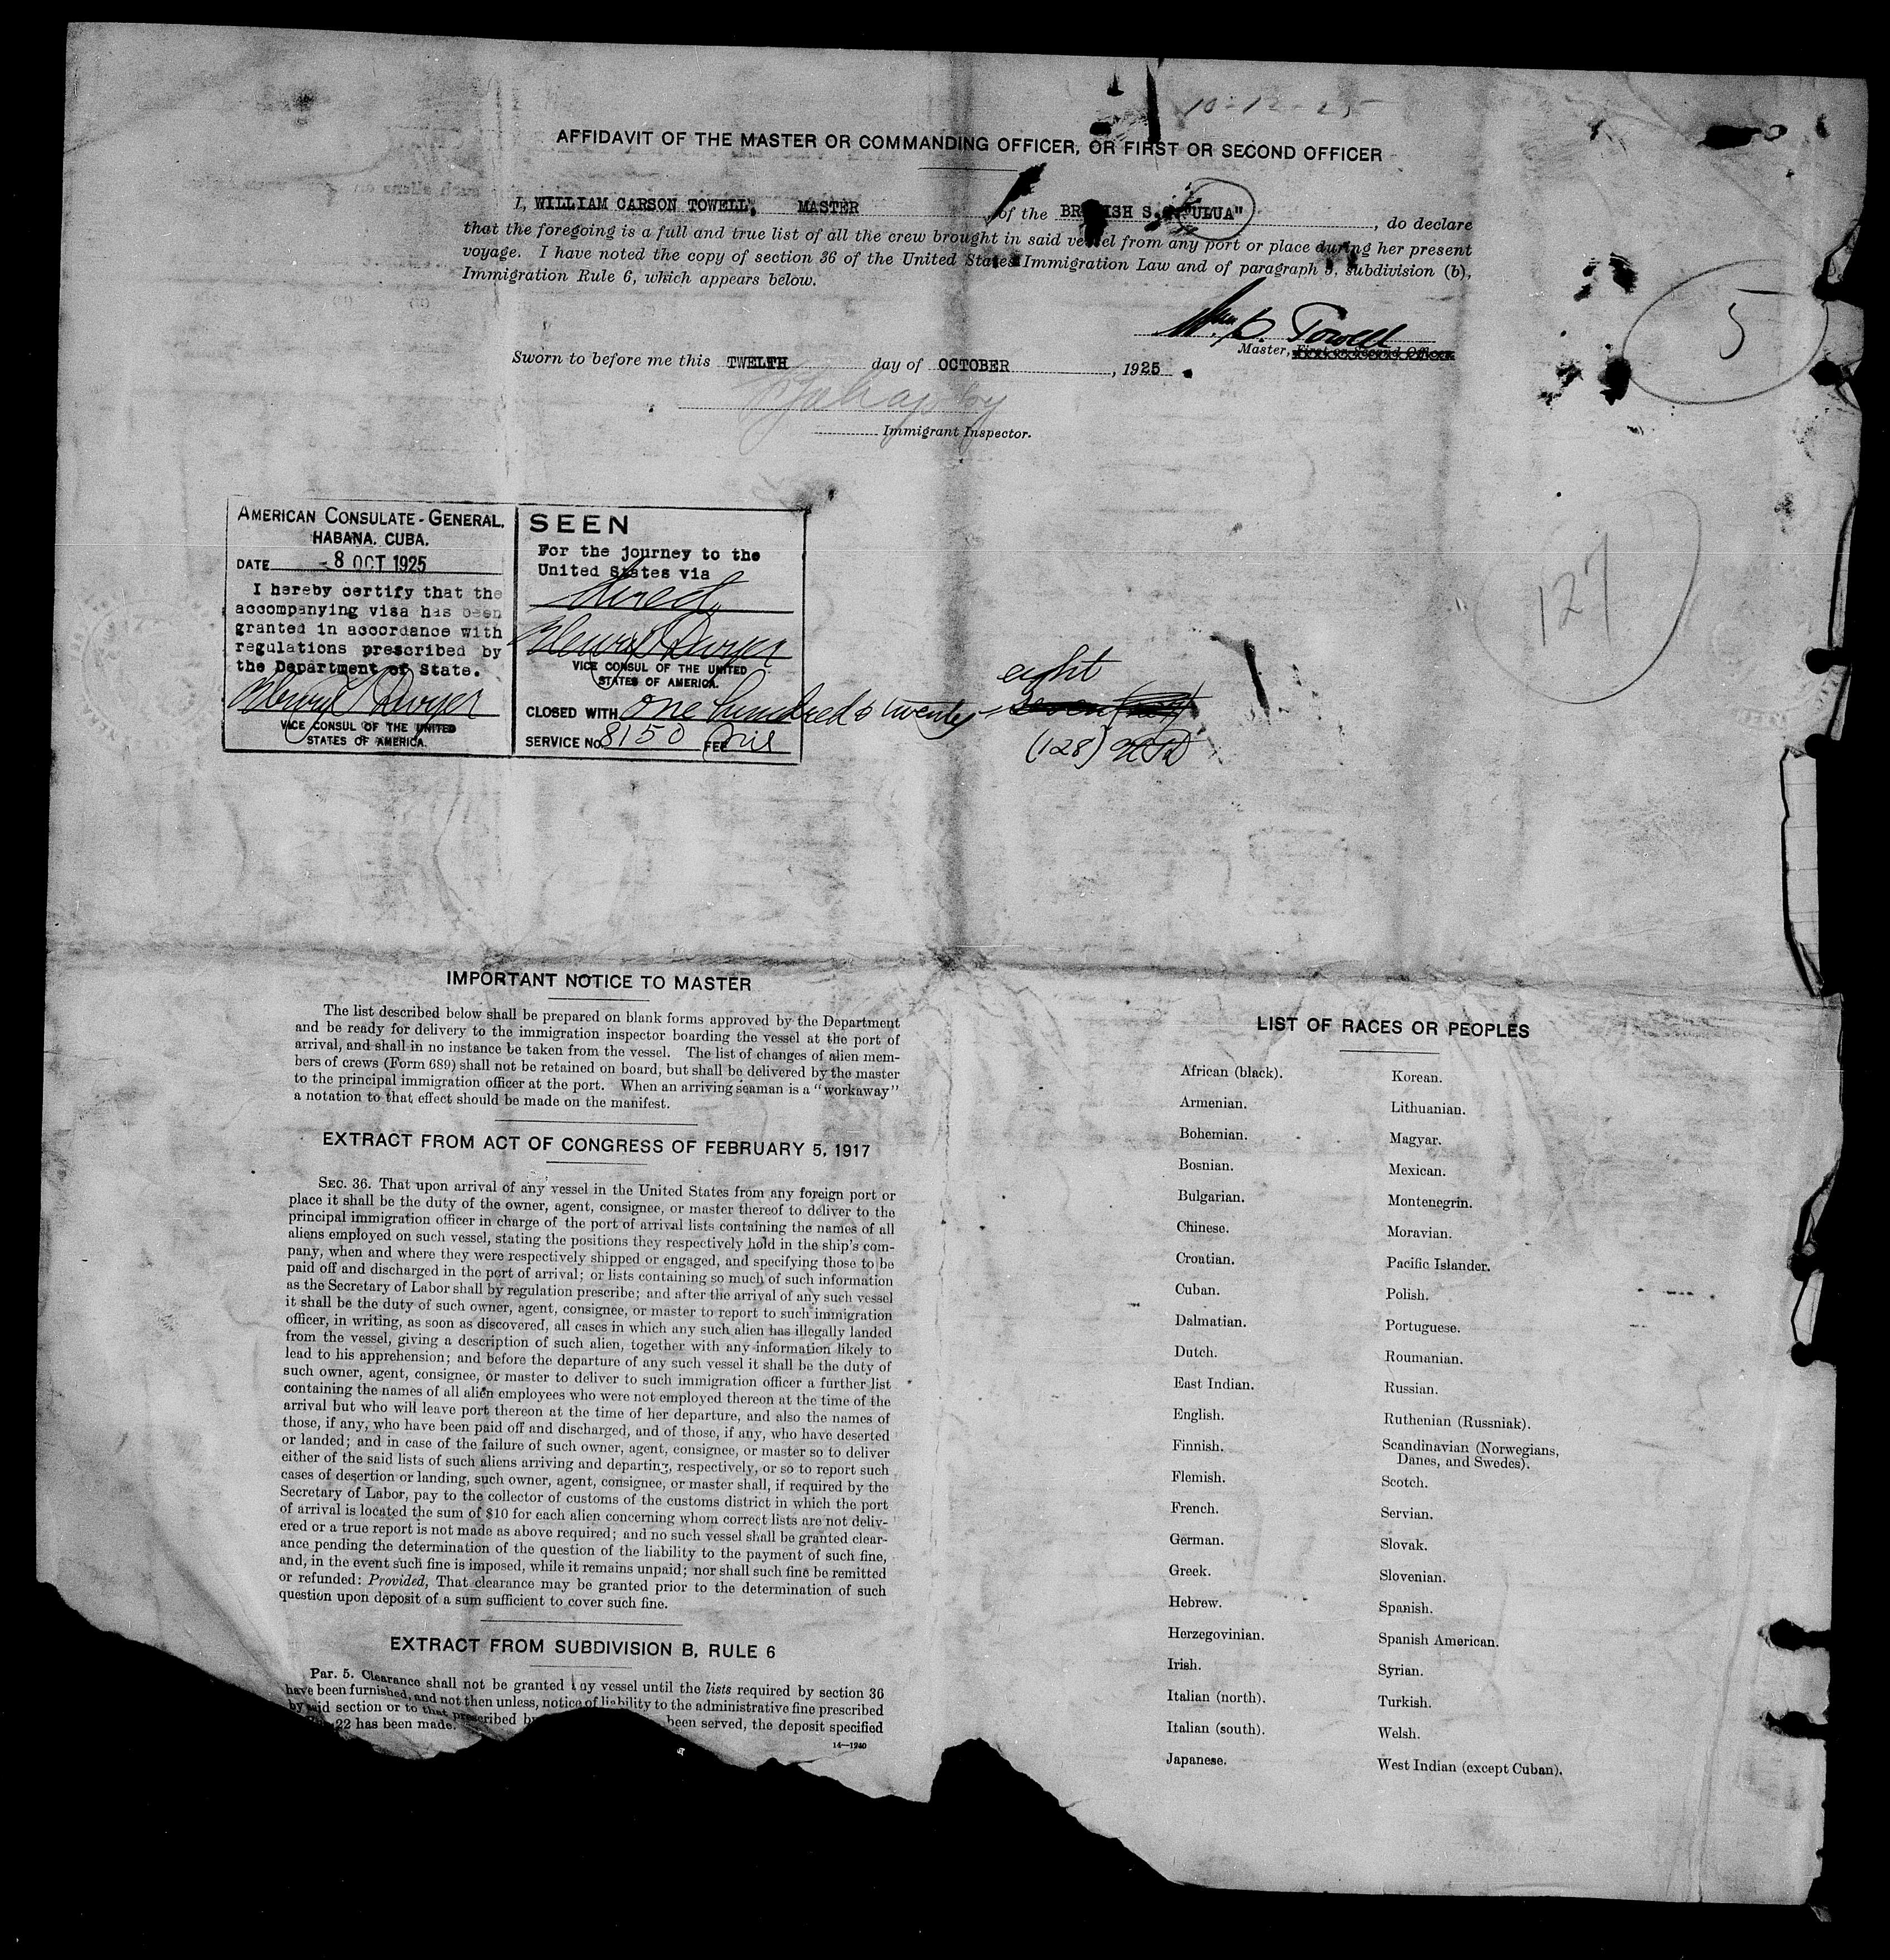 10-12-25
AFFIDAVIT OF THE MASTER OR COMMANDING OFFICER, OR FIRST OR SECOND OFFICER
I, WILLIAM CARSON TOWELL, MASTER of the BRITISH S. "ULUA", do declare
that the foregoing is a full and true list of all the crew brought in said vessel from any port or place during her present
voyage. I have noted the copy of section 36 of the United States Immigration Law and of paragraph 5, subdivision (b),
Immigration Rule 6, which appears below.
Wm. C. Towell
Master, First or Second Officer.
5
Sworn to before me this TWELTH day of OCTOBER, 1925.
Immigrant Inspector.
AMERICAN CONSULATE-GENERAL,
HABANA, CUBA.
DATE -8 OCT 1925
I hereby certify that the
accompanying visa has been
granted in accordance with
regulations prescribed by
the Department of State.
VICE CONSUL OF THE UNITED
STATES OF AMERICA.
SEEN
For the journey to the
United States via
direct
VICE CONSUL OF THE UNITED
STATES OF AMERICA.
eight
CLOSED WITH one hundred & twenty- seven
(128)
SERVICE No. 8150 FEE nil
127
IMPORTANT NOTICE TO MASTER
The list described below shall be prepared on blank forms approved by the Department
and be ready for delivery to the immigration inspector boarding the vessel at the port of
arrival, and shall in no instance be taken from the vessel. The list of changes of alien mem-
bers of crews (Form 689) shall not be retained on board, but shall be delivered by the master
to the principal immigration officer at the port. When an arriving seaman is a "workaway"
a notation to that effect should be made on the manifest.
EXTRACT FROM ACT OF CONGRESS OF FEBRUARY 5, 1917
SEC. 36. That upon arrival of any vessel in the United States from any foreign port or
place it shall be the duty of the owner, agent, consignee, or master thereof to deliver to the
principal immigration officer in charge of the port of arrival lists containing the names of all
aliens employed on such vessel, stating the positions they respectively hold in the ship's com-
pany, when and where they were respectively shipped or engaged, and specifying those to be
paid off and discharged in the port of arrival; or lists containing so much of such information
as the Secretary of Labor shall by regulation prescribe; and after the arrival of any such vessel
it shall be the duty of such owner, agent, consignee, or master to report to such immigration
officer, in writing, as soon as discovered, all cases in which any such alien has illegally landed
from the vessel, giving a description of such alien, together with any information likely to
lead to his apprehension; and before the departure of any such vessel it shall be the duty of
such owner, agent, consignee, or master to deliver to such immigration officer a further list
containing the names of all alien employees who were not employed thereon at the time of the
arrival but who will leave port thereon at the time of her departure, and also the names of
those, if any, who have been paid off and discharged, and of those, if any, who have deserted
or landed; and in case of the failure of such owner, agent, consignee, or master so to deliver
either of the said lists of such aliens arriving and departing, respectively, or so to report such
cases of desertion or landing, such owner, agent, consignee, or master shall, if required by the
Secretary of Labor, pay to the collector of customs of the customs district in which the port
of arrival is located the sum of $10 for each alien concerning whom correct lists are not deliv-
ered or a true report is not made as above required; and no such vessel shall be granted clear-
ance pending the determination of the question of the liability to the payment of such fine,
and, in the event such fine is imposed, while it remains unpaid; nor shall such fine be remitted
or refunded: Provided, That clearance may be granted prior to the determination of such
question upon deposit of a sum sufficient to cover such fine.
EXTRACT FROM SUBDIVISION B, RULE 6
Par. 5. Clearance shall not be granted any vessel until the lists required by section 36
have been furnished, and not then unless, notice of liability to the administrative fine prescribed
by said section or to that prescribed by been served, the deposit specified
22 has been made.
14—1240
LIST OF RACES OR PEOPLES
African (black).
Armenian.
Bohemian.
Bosnian.
Bulgarian.
Chinese.
Croatian.
Cuban.
Dalmatian.
Dutch.
East Indian.
English.
Finnish.
Flemish.
French.
German.
Greek.
Hebrew.
Herzegovinian.
Irish.
Italian (north).
Italian (south).
Japanese.
Korean.
Lithuanian.
Magyar.
Mexican.
Montenegrin.
Moravian.
Pacific Islander.
Polish.
Portuguese.
Roumanian.
Russian.
Ruthenian (Russniak).
Scandinavian (Norwegians,
Danes, and Swedes).
Scotch.
Servian.
Slovak.
Slovenian.
Spanish.
Spanish American.
Syrian.
Turkish.
Welsh.
West Indian (except Cuban).